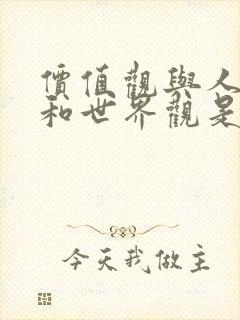 價值觀與人
和世界觀是
今天我做主